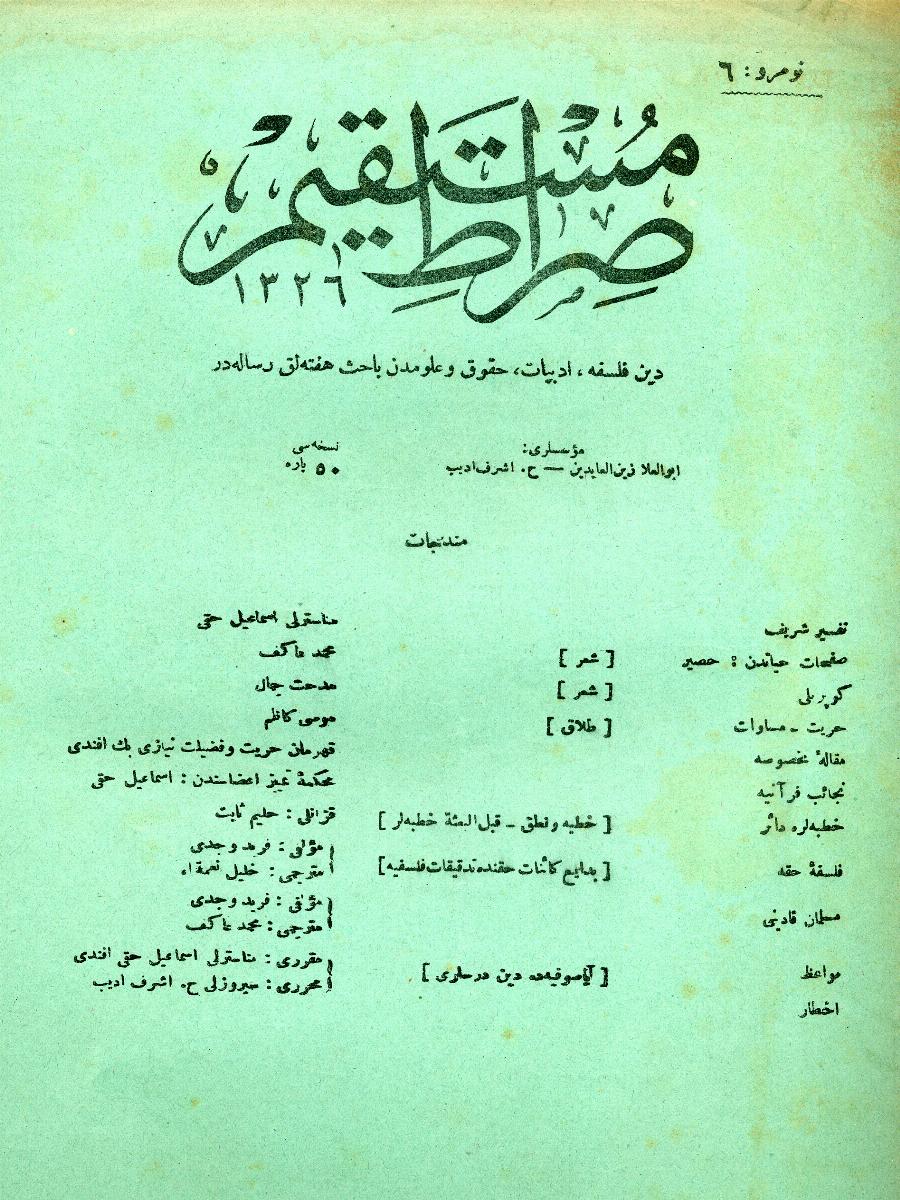 نومرو : ٦
صراط مستقیم
١٣٢٦
دین فلسفه ، ادبیات، حقوق وعلومدن باحث هفته‌لق رساله‌در
مؤسسلری:
ابوالعلا زین‌العابدین — ح. اشرف ادیب
نسخه‌سی
٥٠ پاره
مندرجات
تفسیر شریف مناسترلی اسماعیل حقی
صفحات حیاتدن : حصیر [ شعر ] محمد عاکف
کوپرلی [ شعر ] مدحت جمال
حریت ـ مساوات [ طلاق ] موسی کاظم
مقالهٔ مخصوصه قهرمان حریت وفضیلت نیازی بك افندی
نجائب قرآنیه محکمهٔ تمیز اعضاسندن : اسماعیل حقی
خطبه‌لره دائر [ خطبه ونطق ـ قبل‌البعثة خطبه‌لر ] قزانلی : حلیم ثابت
فلسفهٔ حقه [ بدایع کائنات حقنده تدقیقات فلسفیه ] مؤلفی : فرید وجدی
مترجمی : خلیل نعمة‌الله
مسلمان قادینی مؤلفی : فرید وجدی
مترجمی : محمد عاکف
مواعظ [ آیاصوفیه‌ده دین درسلری ] مقرری : مناسترلی اسماعیل حقی افندی
محرری : سیروزلی ح. اشرف ادیب
اخطار